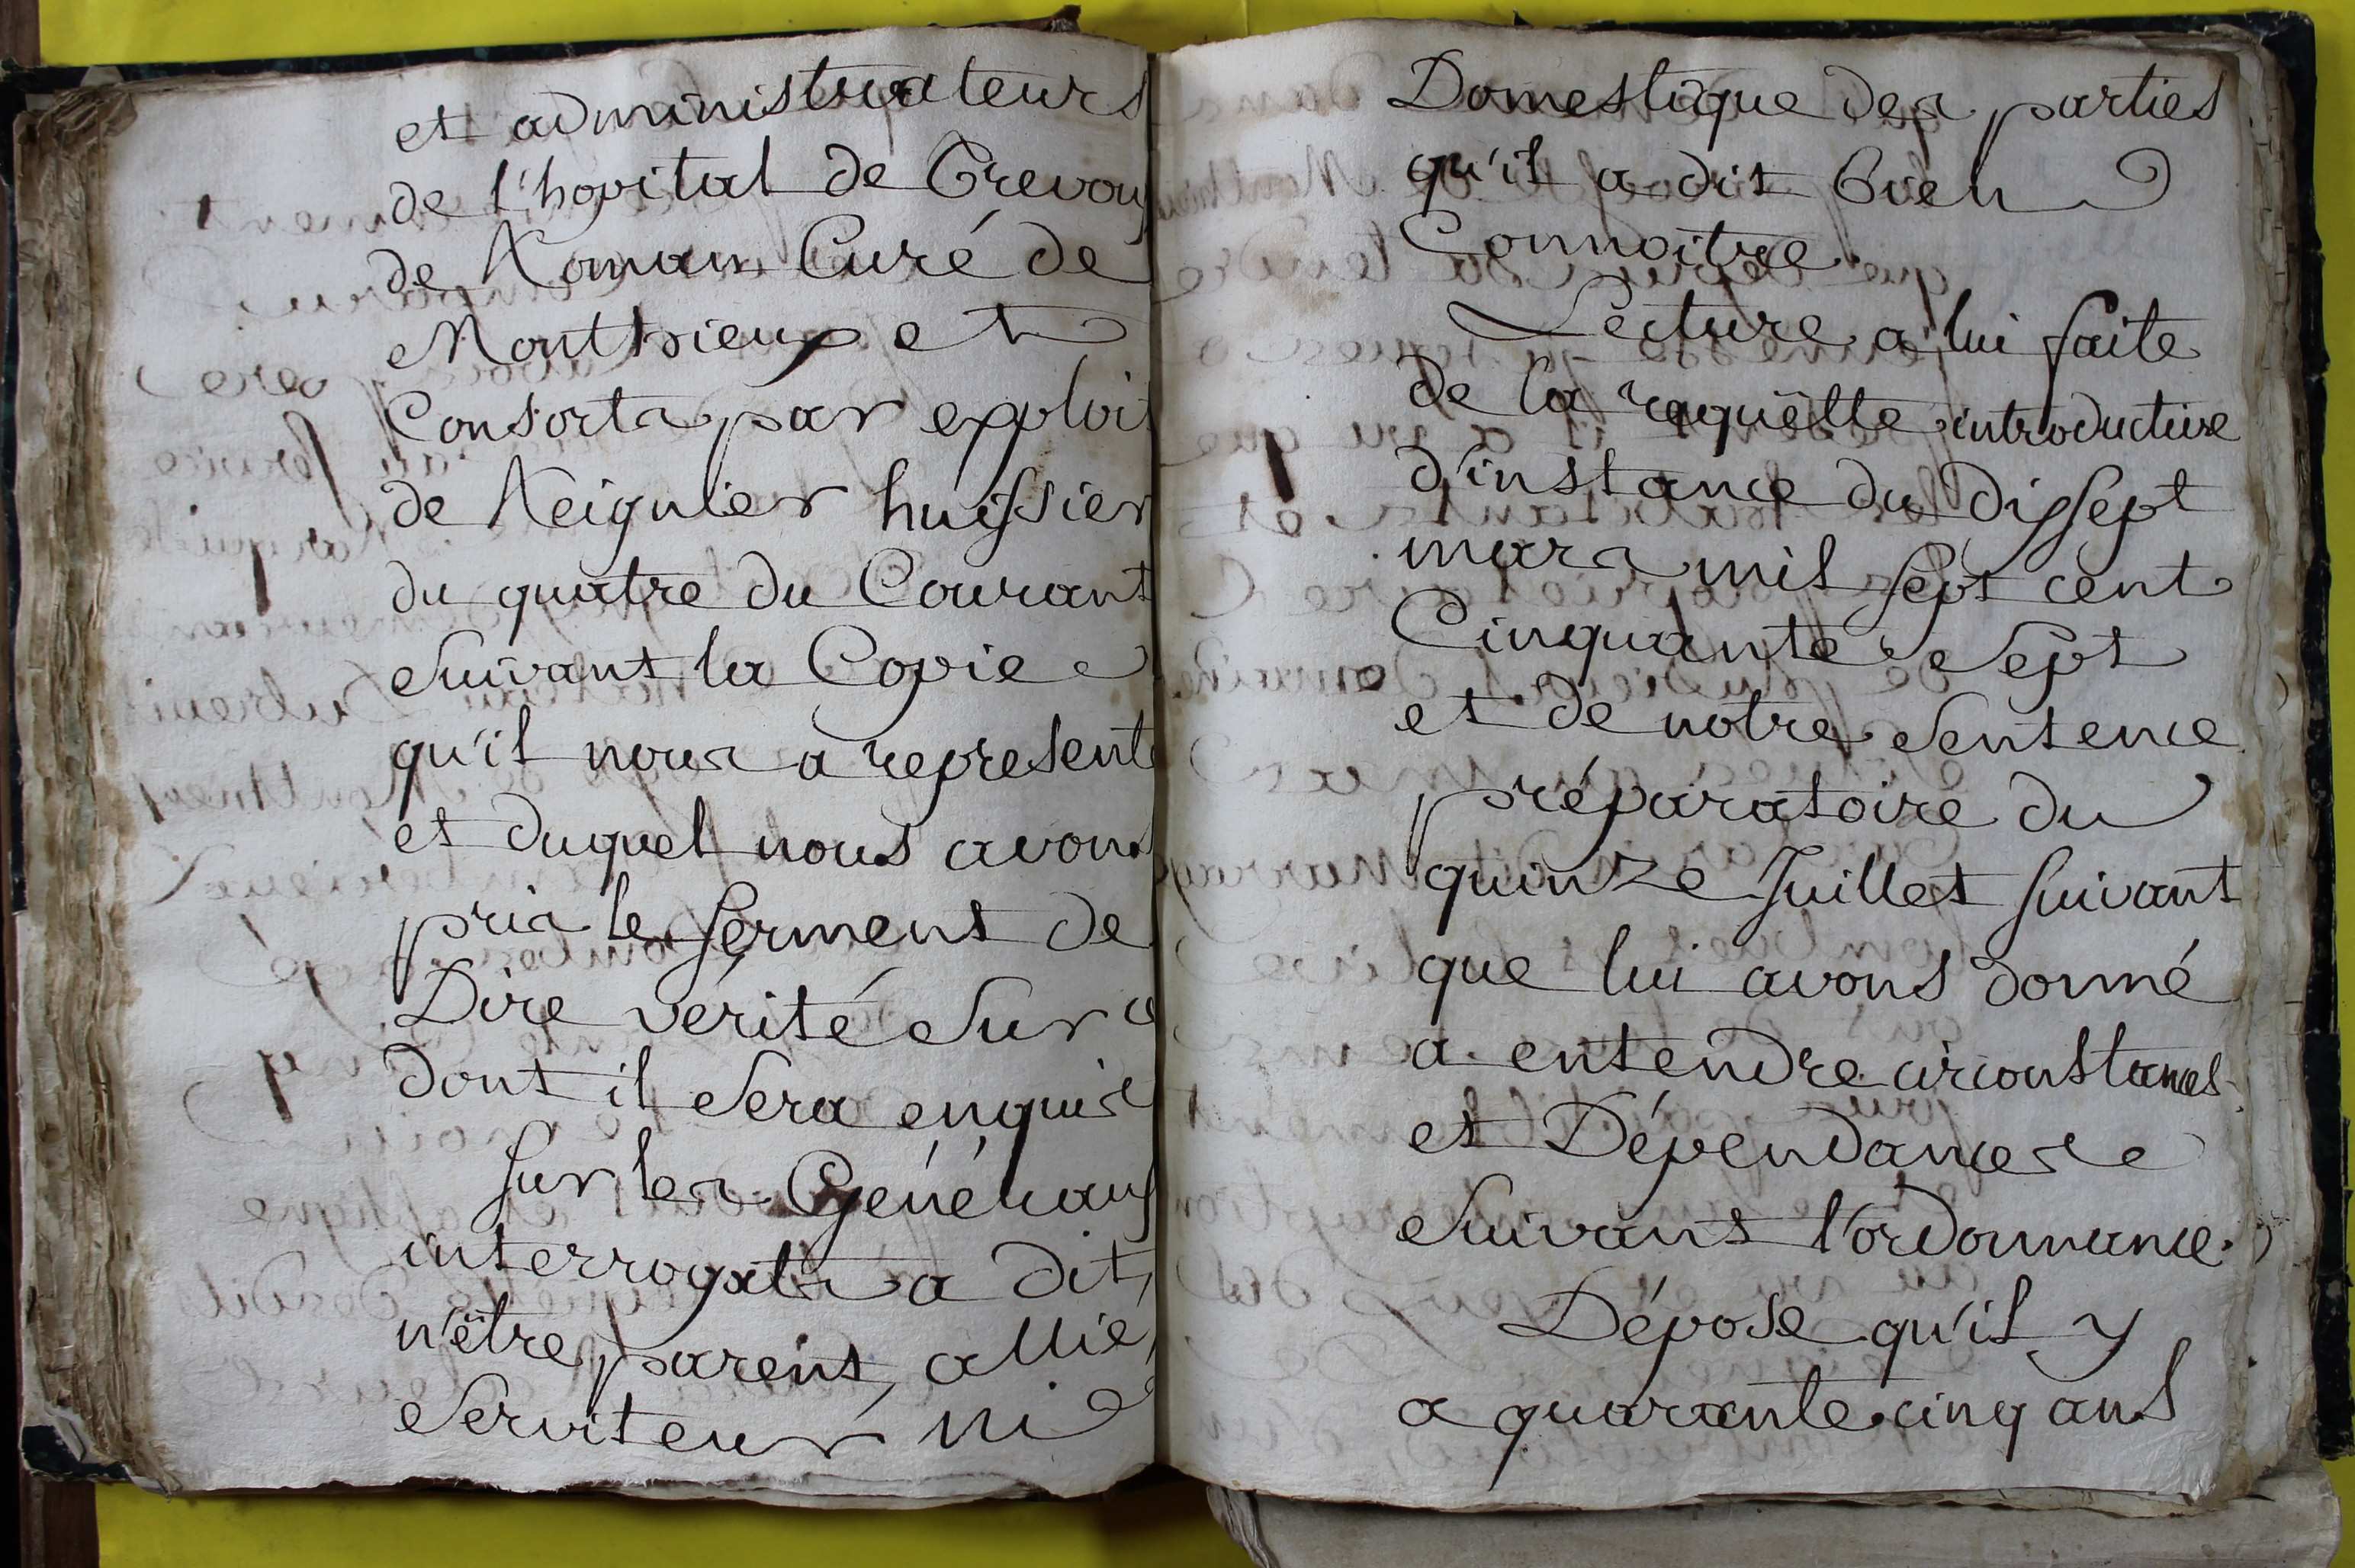 et administrateurs
de l'hopital de Trevoux
de Romans Curé de
Monthieux et
Consorts par exploit
de Reignier huissier
du quatre du Courant
Suivant la Copie
qu'il nous a representé
et duquel nous avons
pris le serment de
Dire vérité Sur ce
dont il Sera enquis
Sur les Généraux
interrogats a dit
n'être parent, allié,
Serviteur ni
Domestique des parties
qu'il a dit bien
Connoitre.
Lecture a lui faite
de la requëtte introductive
d'instance du dissept
mars mil sept cent
Cinquante Sept
et de notre Sentence
préparatoire du
quinze Juillet suivant
que lui avons donné
a entendre circonstances
et Dépendances
Suivant l'ordonnance.
Dépose qu'il y
a quarante cinq ans